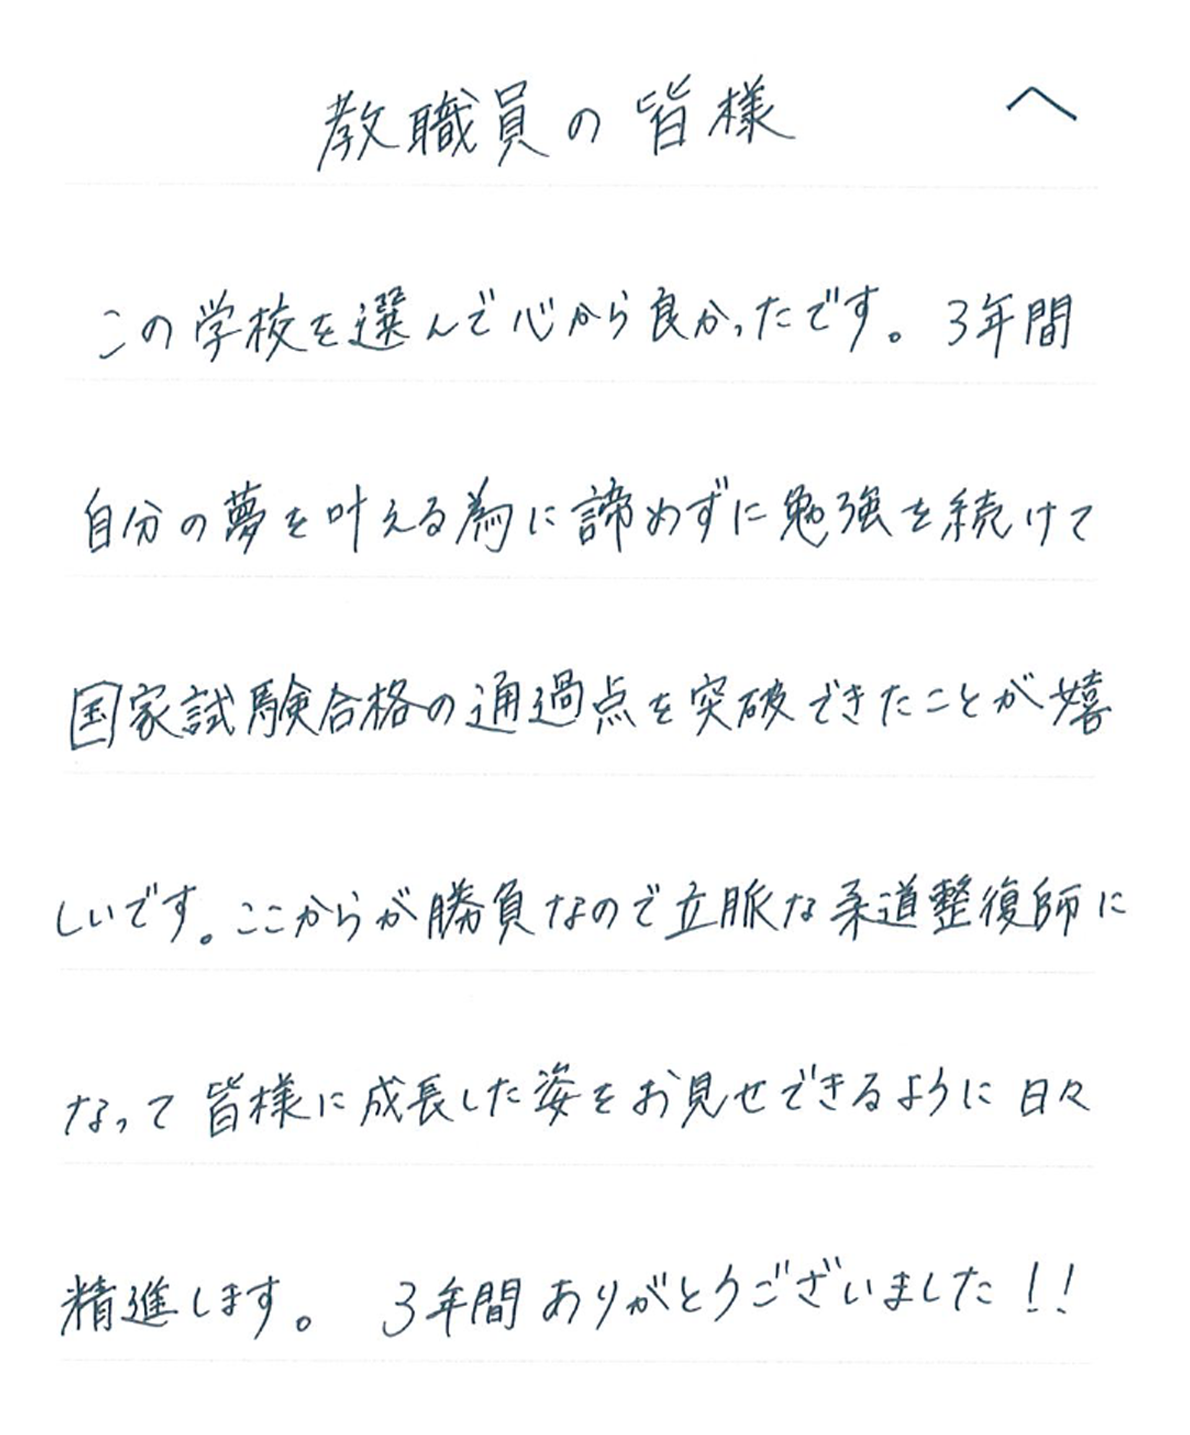 教職員の皆様 へ
この学校を選んで心から良かったです。3年間
自分の夢を叶える為に諦めずに勉強を続けて
国家試験合格の通過点を突破できたことが嬉
しいです。ここからが勝負なので立脈な柔道整復師に
なって皆様に成長した姿をお見せできるように日々
精進します。 3年間ありがとうございました!!